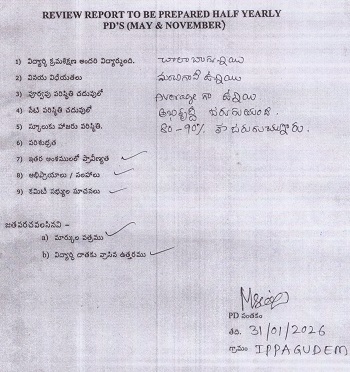 REVIEW REPORT TO BE PREPARED HALF YEARLY
PD'S (MAY & NOVEMBER)
1) విద్యార్థి క్రమశిక్షణ అందరి విద్యార్థులది. చాలా బాగున్నాయి
2) వినయ విధేయతలు మంచిగానే ఉన్నాయి
3) పూర్వపు పరిస్థితి చదువులో Average గా ఉన్నాయి
4) నేటి పరిస్థితి చదువులో అభివృద్ధి జరుగుచుంది.
5) స్కూలుకు హాజరు పరిస్థితి. 80-90% హాజరుగుచున్నారు.
6) పరిశుభ్రత
7) ఇతర అంశములతో ప్రావీణ్యత ✓
8) అభిప్రాయాలు / సలహాలు ✓
9) కమిటి సభ్యుల సూచనలు ✓
జతపరచవలసినవి -
a) మార్కుల పత్రము ✓
b) విద్యార్థి దాతకు వ్రాసిన ఉత్తరము ✓
PD సంతకం
తేది. 31/01/2026
గ్రామం IPPAGUDEM